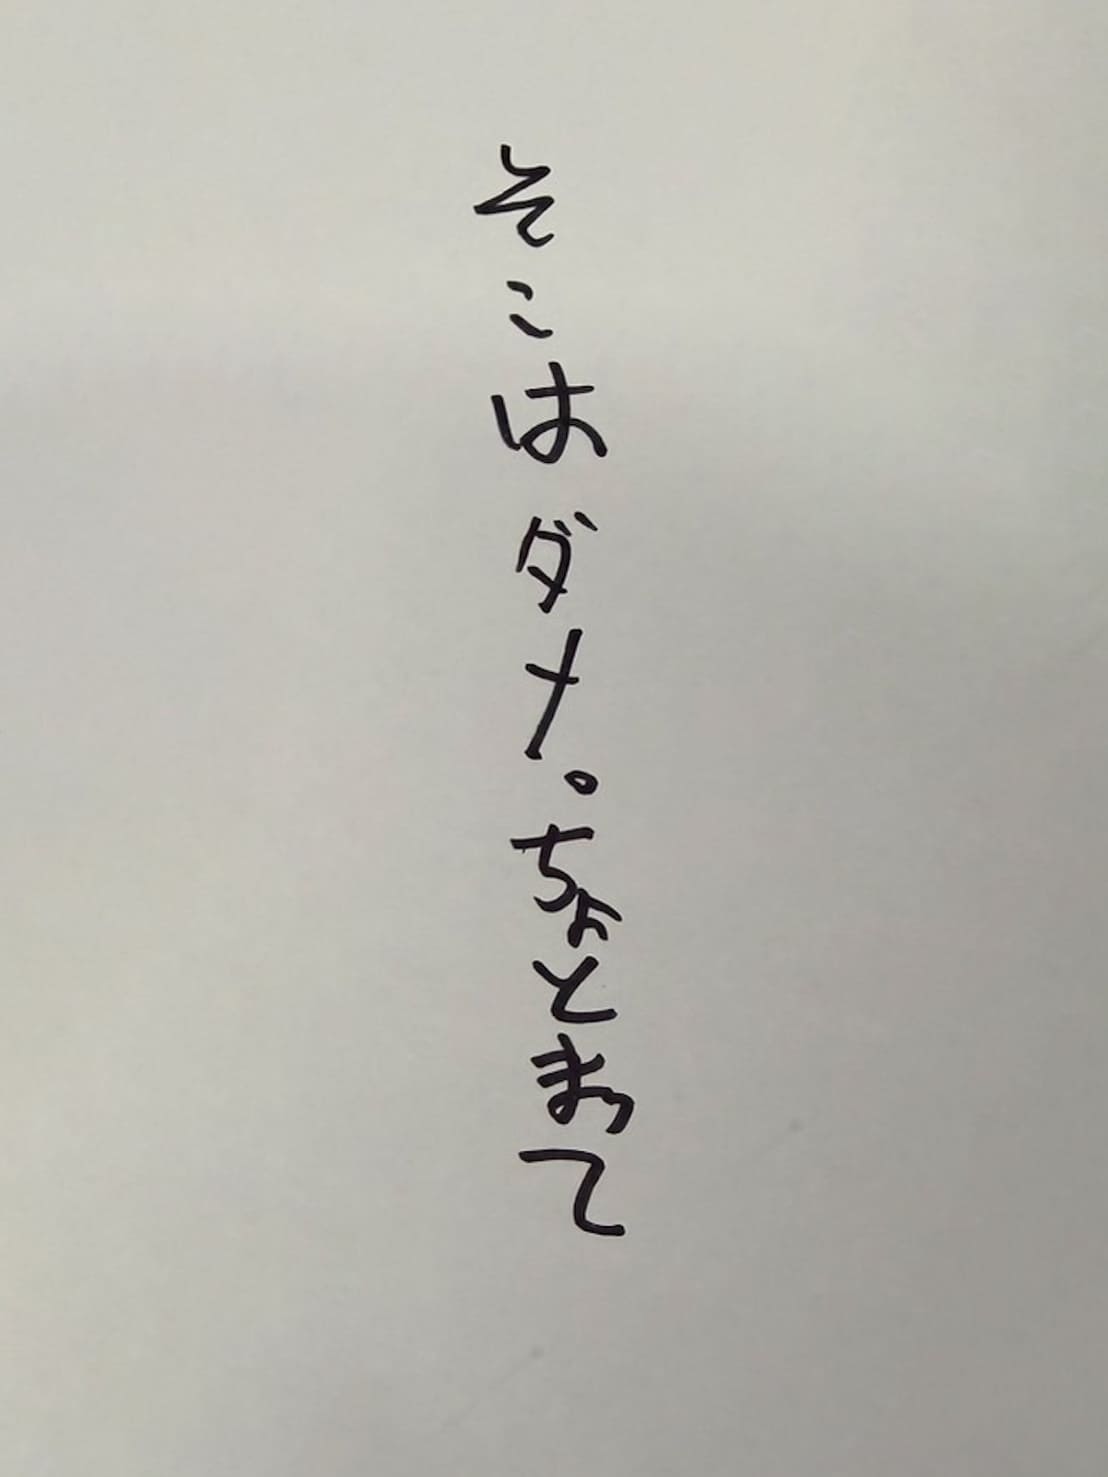 そこはダメ。ちょとまって